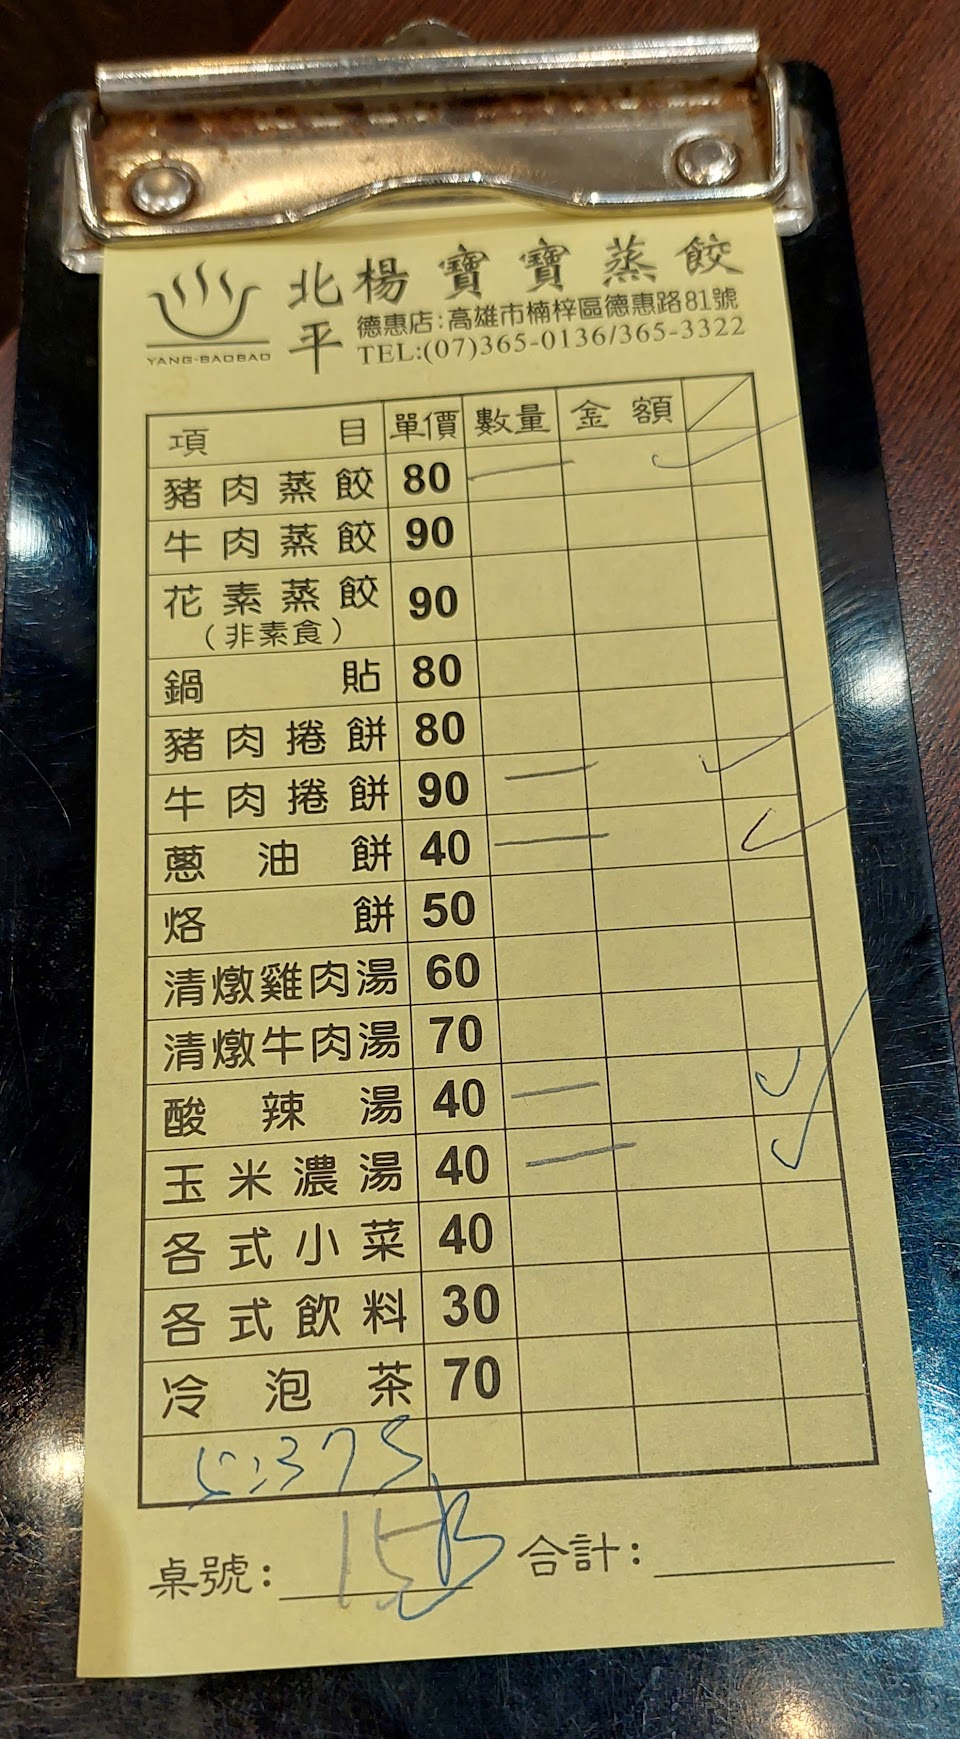 北平楊寶寶蒸餃
德惠店:高雄市楠梓區德惠路81號
TEL:(07)365-0136/365-3322
YANG-BAOBAO
項目 單價 數量 金額
豬肉蒸餃 80 一 ✓
牛肉蒸餃 90
花素蒸餃 90
(非素食)
鍋貼 80
豬肉捲餅 80
牛肉捲餅 90 一 ✓
蔥油餅 40 一 ✓
烙餅 50
清燉雞肉湯 60
清燉牛肉湯 70
酸辣湯 40 一 ✓
玉米濃湯 40 一 ✓
各式小菜 40
各式飲料 30
冷泡茶 70
桌號: 15B 合計: